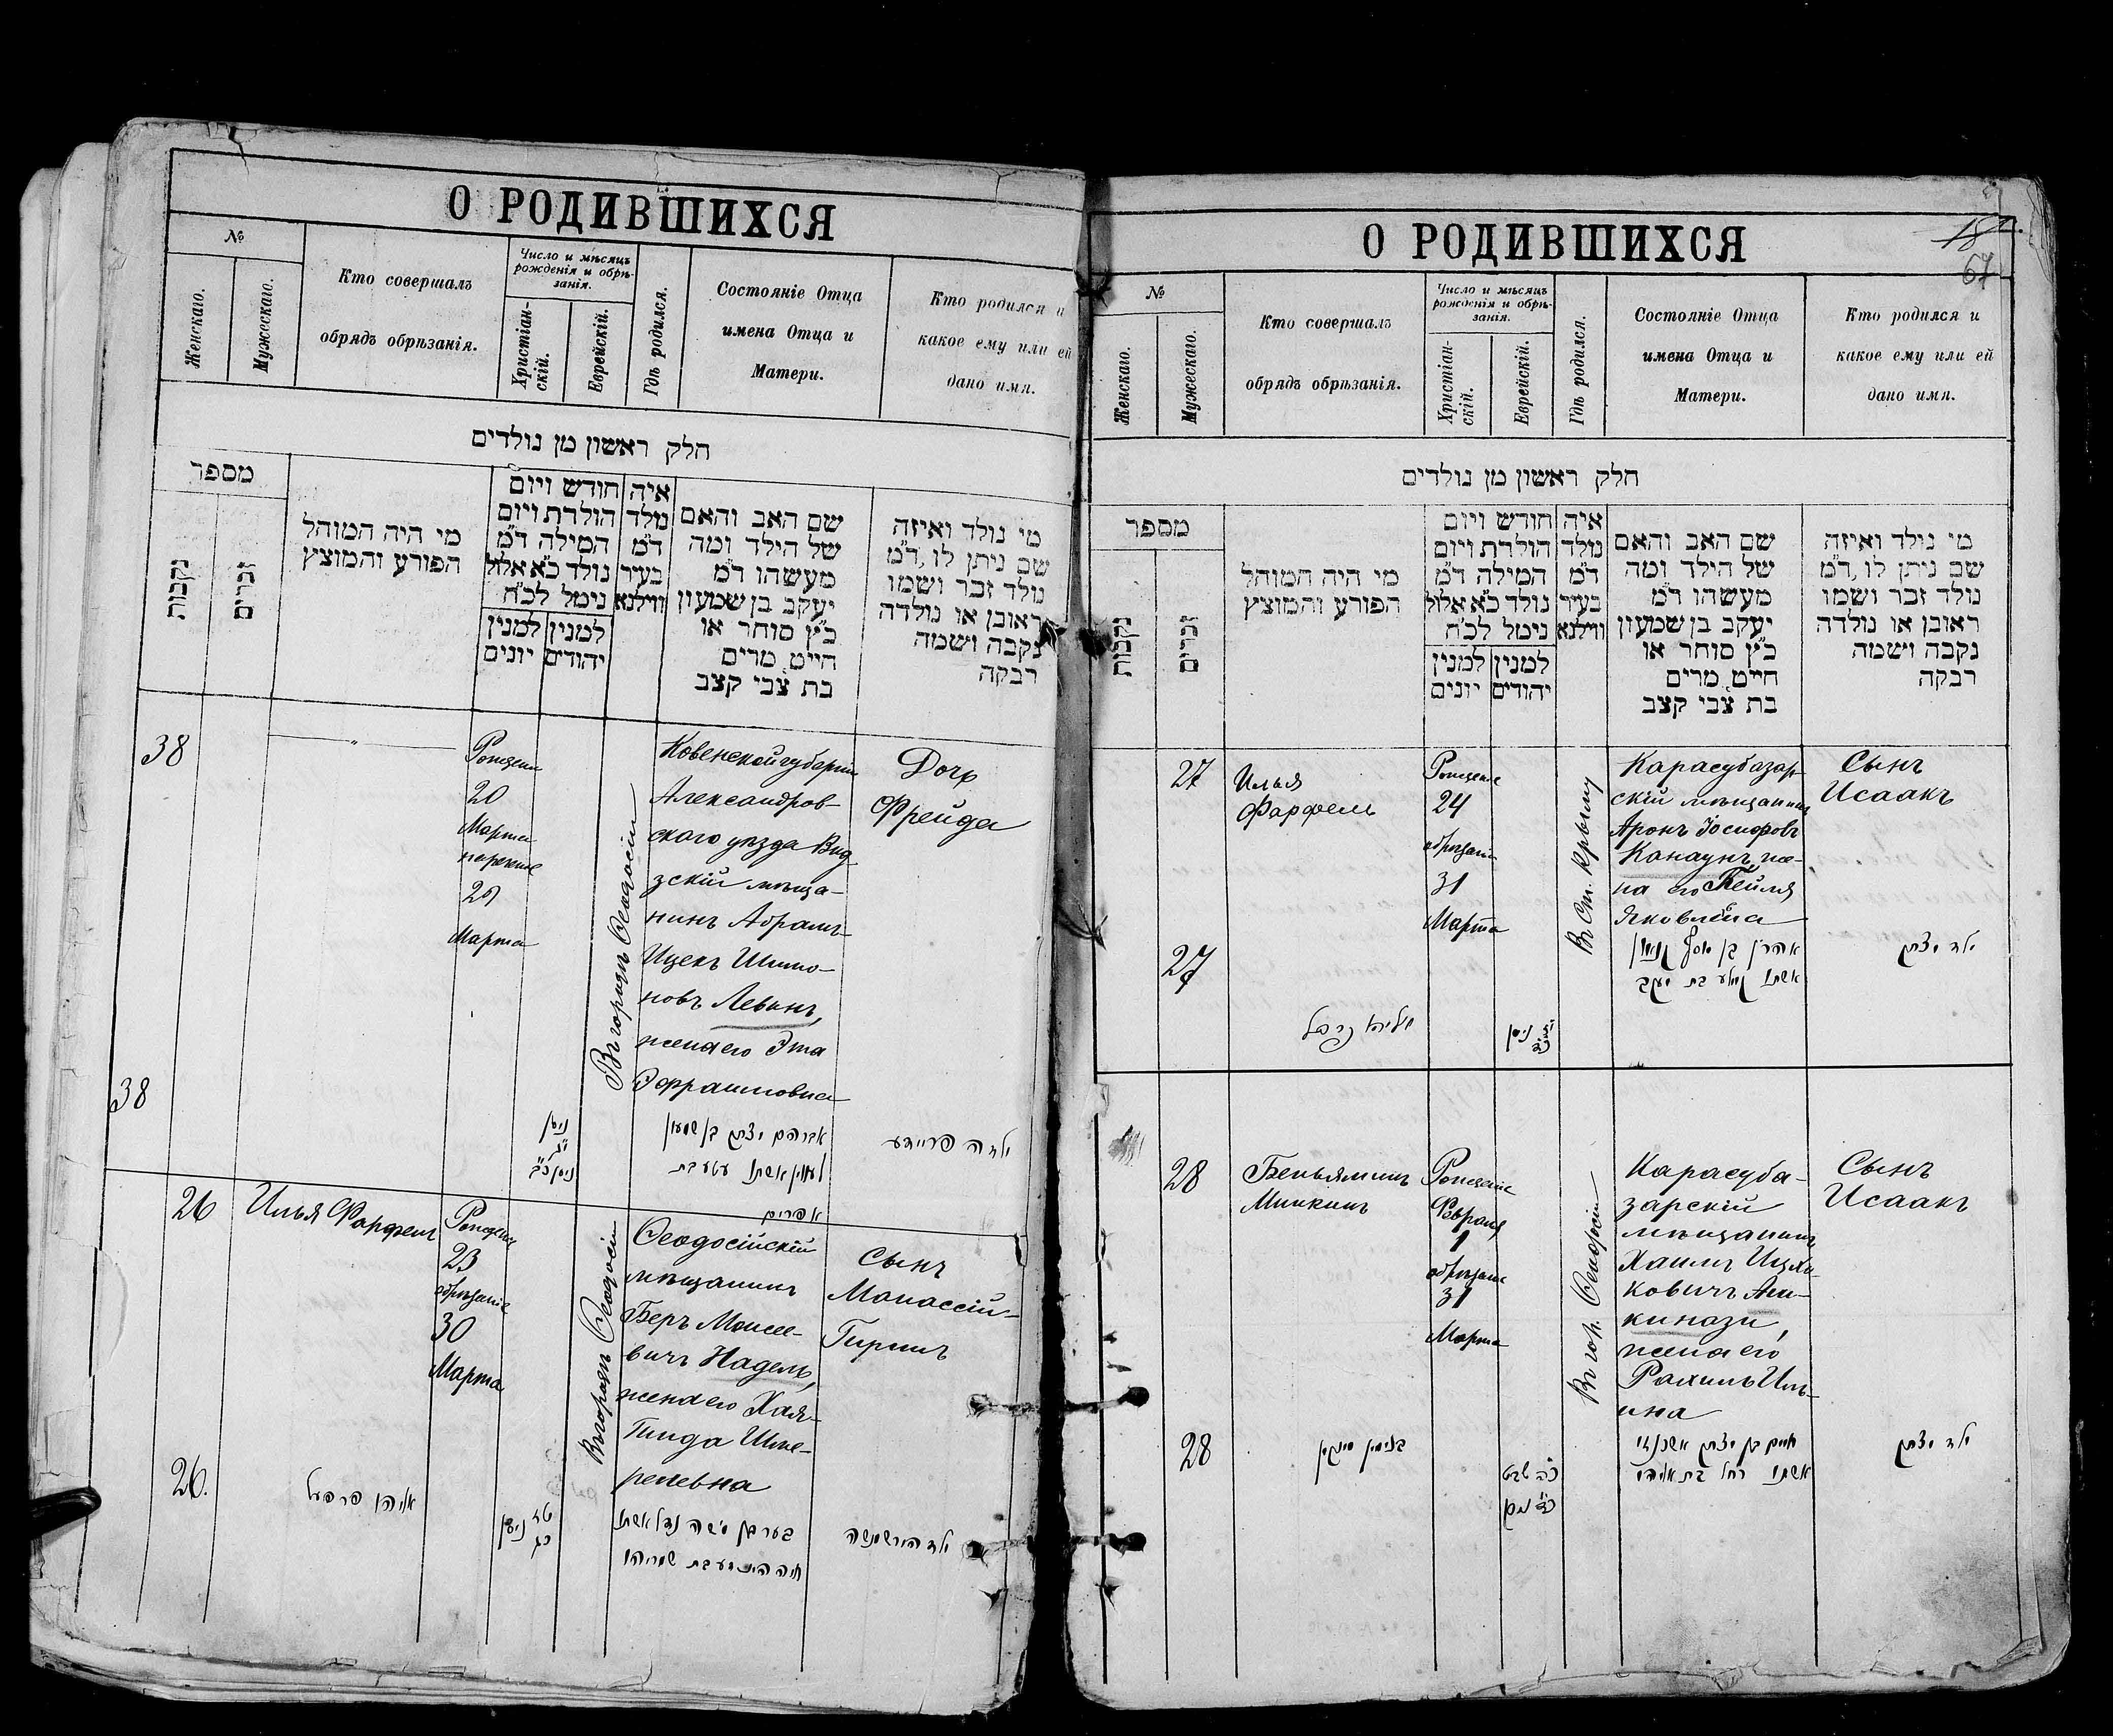 О РОДИВШИХСЯ
№
Женскаго.
Мужескаго.
Кто совершалъ
обрядъ обрѣзанія.
Число и мѣсяцъ
рожденія и обрѣ-
занія.
Христіан-
скій.
Еврейскій.
Гдѣ родился.
Состояніе Отца
имена Отца и
Матери.
Кто родился и
какое ему или ей
дано имя.
חלק ראשון מן נולדים
מספר
נקבות
זכרים
מי היה המוהל
הפורע והמוצץ
חודש ויום
הולדת ויום
המילה ד״מ
נולד כ״א אלול
נימל לכ״ח
למנין יהודים
למנין יונים
איה
נולד
ד״מ
בעיר
ווילנא
שם האב והאם
של הילד ומה
מעשהו ד״מ
יעקב בן שמעון
כ״ץ סוחר או
חייט מרים
בת צבי קצב
מי נולד ואיזה
שם ניתן לו, ד״מ
נולד זכר ושמו
ראובן או נולדה
נקבה ושמה
רבקה
38
20
Марта
29
Марта
Въ городѣ Ѳеодосіи
Ковенской губерніи
Александров-
скаго уѣзда Вид
зскій мѣща-
нинъ Абрамъ-
Ицекъ Шимо-
новъ Левинъ,
жена его Эта
Эфраимовна
Дочь
Фрейда
38
ניסן
אברהם יצחק בן שמעון
לעווין אשתו עטע בת
אפרים
ילדה פריידע
26
Илья Фарфель
23
обрѣзаніе
30
Марта
Въ городѣ Ѳеодосіи
Ѳеодосійскій
мѣщанинъ
Беръ Моисее-
вичъ Надель,
жена его Хая-
Гинда Шме-
релевна
Сынъ
Манассій-
Гиршъ
26.
אליהו פרפעל
ניסן
בער בן משה נדל אשתו
О РОДИВШИХСЯ
18
67
№
Женскаго.
Мужескаго.
Кто совершалъ
обрядъ обрѣзанія.
Число и мѣсяцъ
рожденія и обрѣ-
занія.
Христіан-
скій.
Еврейскій.
Гдѣ родился.
Состояніе Отца
имена Отца и
Матери.
Кто родился и
какое ему или ей
дано имя.
חלק ראשון מן נולדים
מספר
נקבות
זכרים
מי היה המוהל
הפורע והמוצץ
חודש ויום
הולדת ויום
המילה ד״מ
נולד כ״א אלול
נימל לכ״ח
למנין יהודים
למנין יונים
איה
נולד
ד״מ
בעיר
ווילנא
שם האב והאם
של הילד ומה
מעשהו ד״מ
יעקב בן שמעון
כ״ץ סוחר או
חייט מרים
בת צבי קצב
מי נולד ואיזה
שם ניתן לו, ד״מ
נולד זכר ושמו
ראובן או נולדה
נקבה ושמה
רבקה
27
Илья
Фарфель
24
обрѣзаніе
31
Марта
Въ Ст. Крыму
Карасубазар-
скій мѣщанинъ
Аронъ Іосифовъ
Канаунъ, же-
на его Бейля
Яковлевна
Сынъ
Исаакъ
27
ניסן
אהרן בן יוסף
אשתו ביילע בת יעקב
ילד יצחק
28
Беньяминъ
Минкинъ
Рожденіе
Февраля
1
обрѣзаніе
31
Марта
Въ гор. Ѳеодосіи
Карасуба-
зарскій
мѣщанинъ
Хаимъ Ицха-
ковичъ Аш-
кинази,
жена его
Рахиль Иль-
ина
Сынъ
Исаакъ
28
בנימין מינקין
כ״ה שבט
חיים בן יצחק אשכנזי
אשתו רחל בת אליהו
ילד יצחק